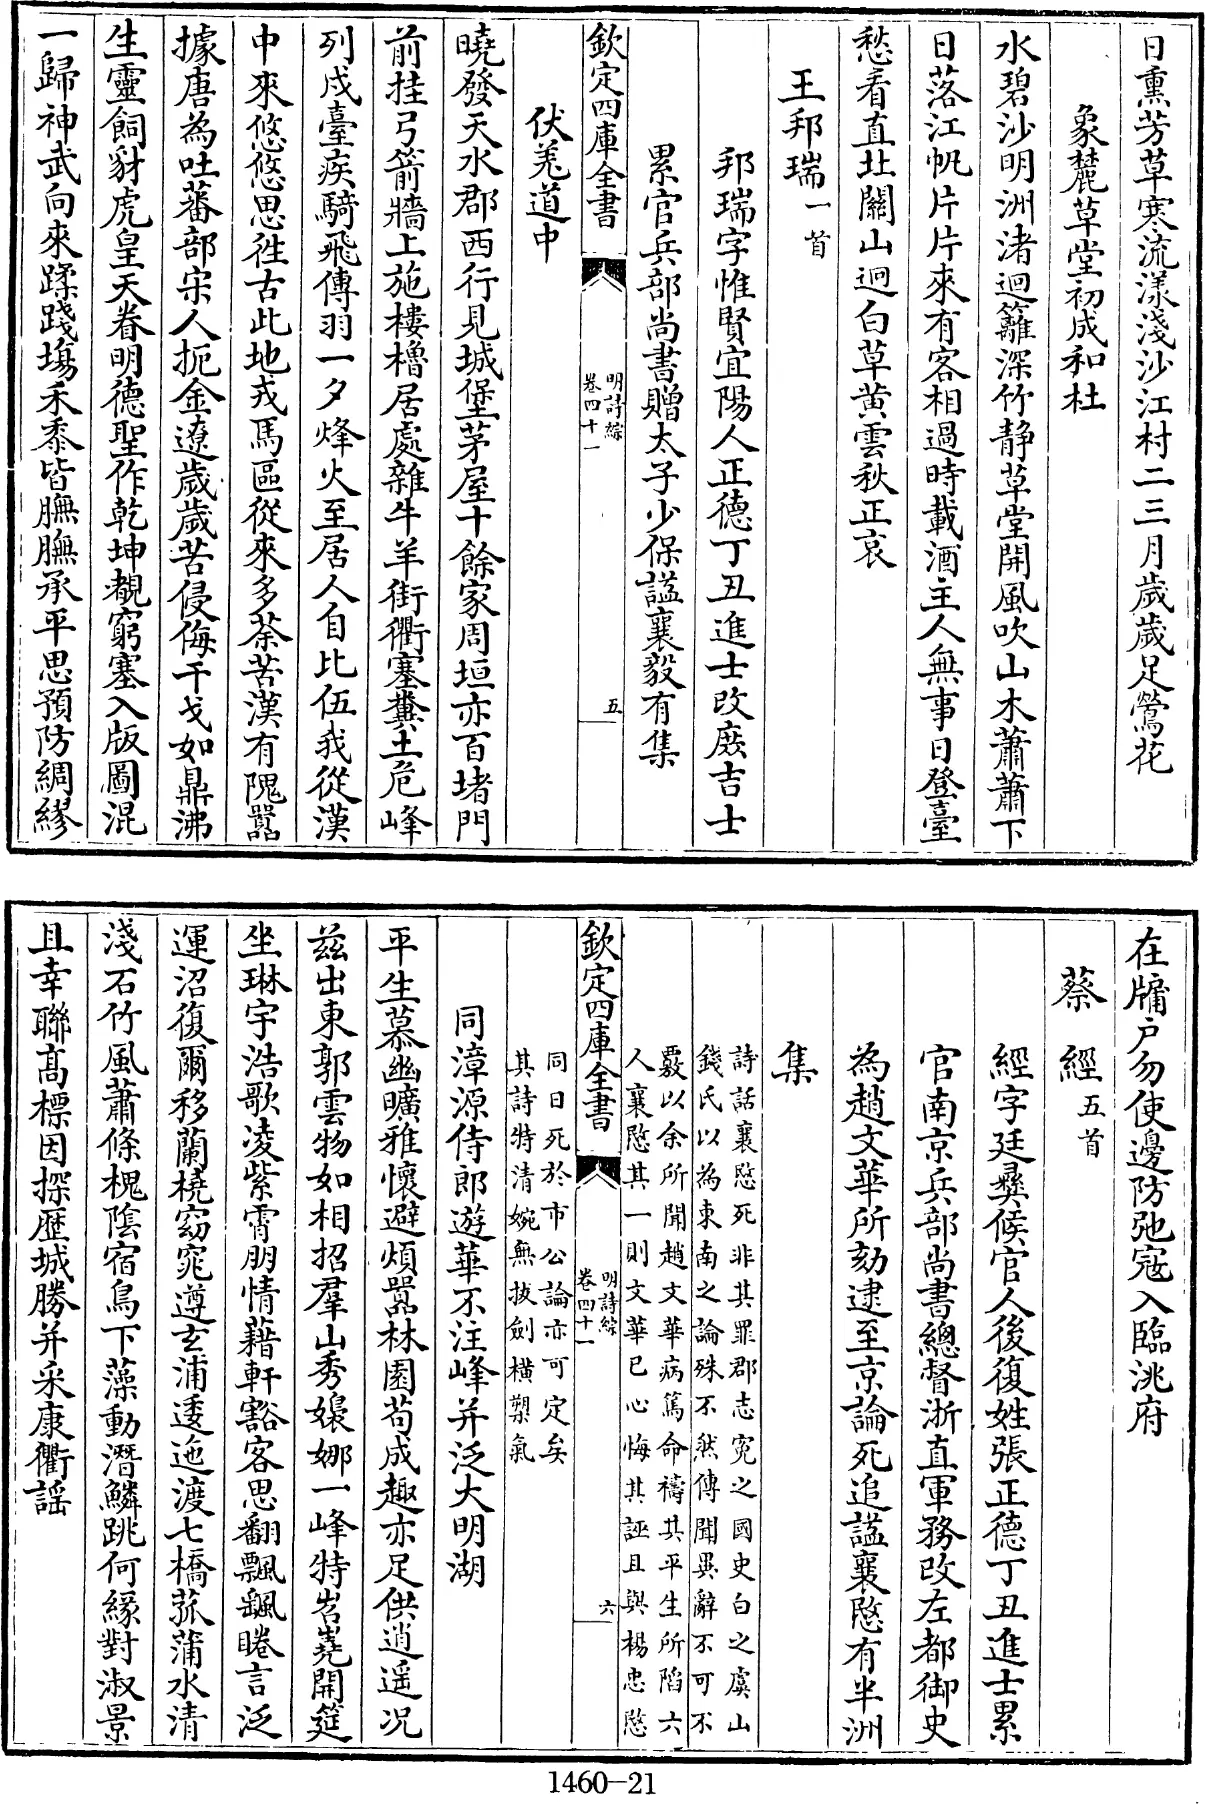 日熏芳草寒流漾淺沙江村二三月歲歲足鶯花
象麓草堂初成和杜
水碧沙明洲渚迴籬深竹靜草堂開風吹山木蕭蕭下
日落江帆片片來有客相過時載酒主人無事日登臺
愁看直北關山迥白草黃雲秋正哀
王邦瑞一首
邦瑞字惟賢宜陽人正德丁丑進士改庶吉士
累官兵部尚書贈太子少保諡襄毅有集
欽定四庫全書
明詩綜
卷四十一
五
伏羌道中
曉發天水郡西行見城堡茅屋十餘家周垣亦百堵門
前挂弓箭牆上施樓櫓居處雜牛羊街衢塞糞土危峰
列戍臺疾騎飛傳羽一夕烽火至居人自比伍我從漢
中來悠悠思徃古此地戎馬區從來多荼苦漢有隗囂
據唐為吐蕃部宋人扼金遼歲歲苦侵侮干戈如鼎沸
生靈飼豺虎皇天眷明德聖作乾坤覩窮塞入版圖混
一歸神武向來蹂踐場禾黍皆膴膴承平思預防綢繆
在牖户勿使邊防弛寇入臨洮府
蔡經五首
經字廷彞候官人後復姓張正德丁丑進士累
官南京兵部尚書總督浙直軍務改左都御史
為趙文華所劾逮至京論死追諡襄愍有半洲
集
詩話襄愍死非其罪郡志寃之國史白之虞山
錢氏以為東南之論殊不然傳聞異辭不可不
覈以余所聞趙文華病篤命禱其平生所陷六
人襄愍其一則文華已心悔其誣且與楊忠愍
欽定四庫全書
明詩綜
卷四十一
六
同日死於市公論亦可定矣
其詩特清婉無拔劍橫槊氣
同漳源侍郎遊華不注峰并泛大明湖
平生慕幽曠雅懷避煩囂林園苟成趣亦足供逍遥况
茲出東郭雲物如相招羣山秀嬝娜一峰特岧嶤開筵
坐琳宇浩歌凌紫霄朋情藉軒豁客思翻飄颻睠言泛
運沼復爾移蘭橈窈窕遵玄浦逶迤渡七橋菰蒲水清
淺石竹風蕭條槐陰宿鳥下藻動潛鱗跳何緣對淑景
且幸聯髙標因探歷城勝并采康衢謡
1460—21